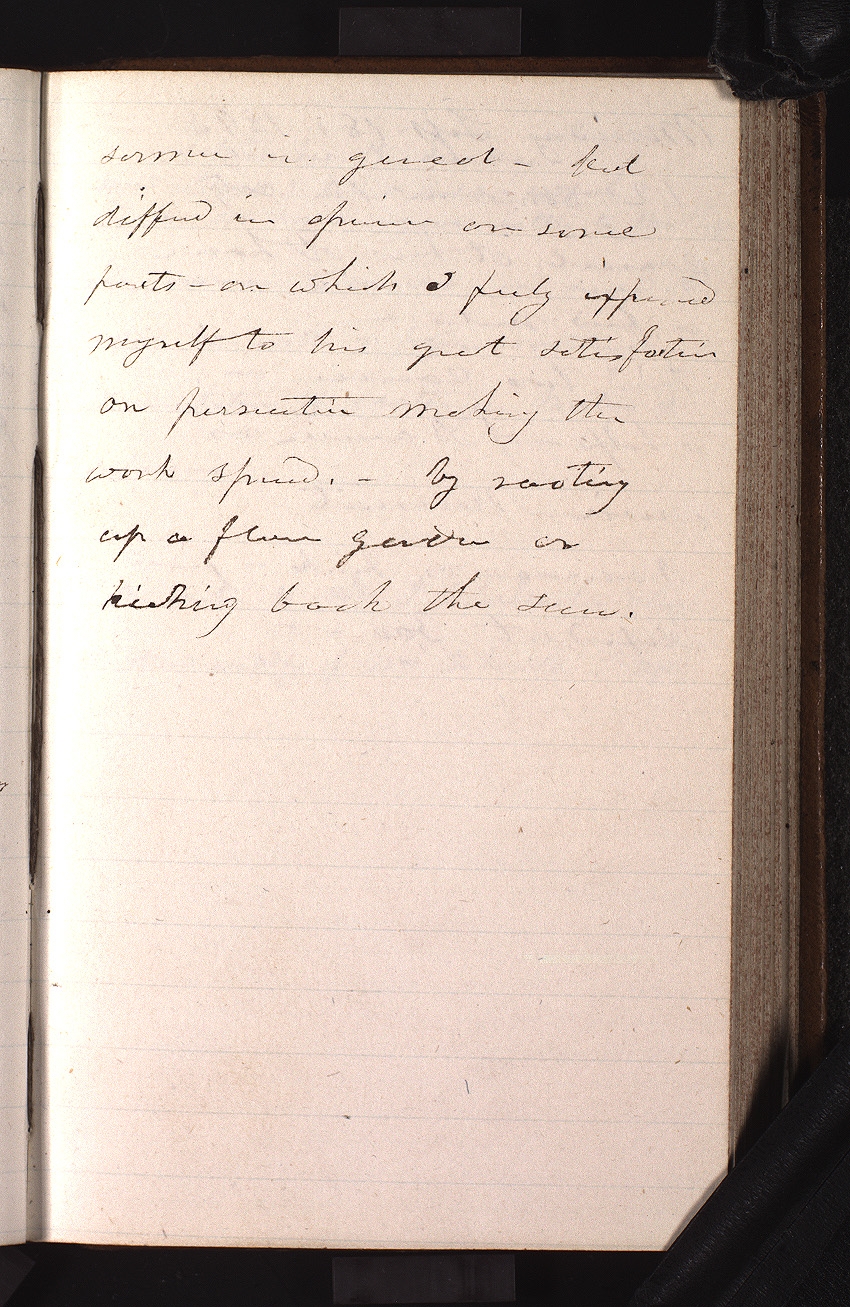 sermon in general - but
differed in opinion on some
parts - on which I fully expressed
myself to his great satisfaction
on persecution making the
work spread. - by rooting
up a flower garden or
kicking back the sun.